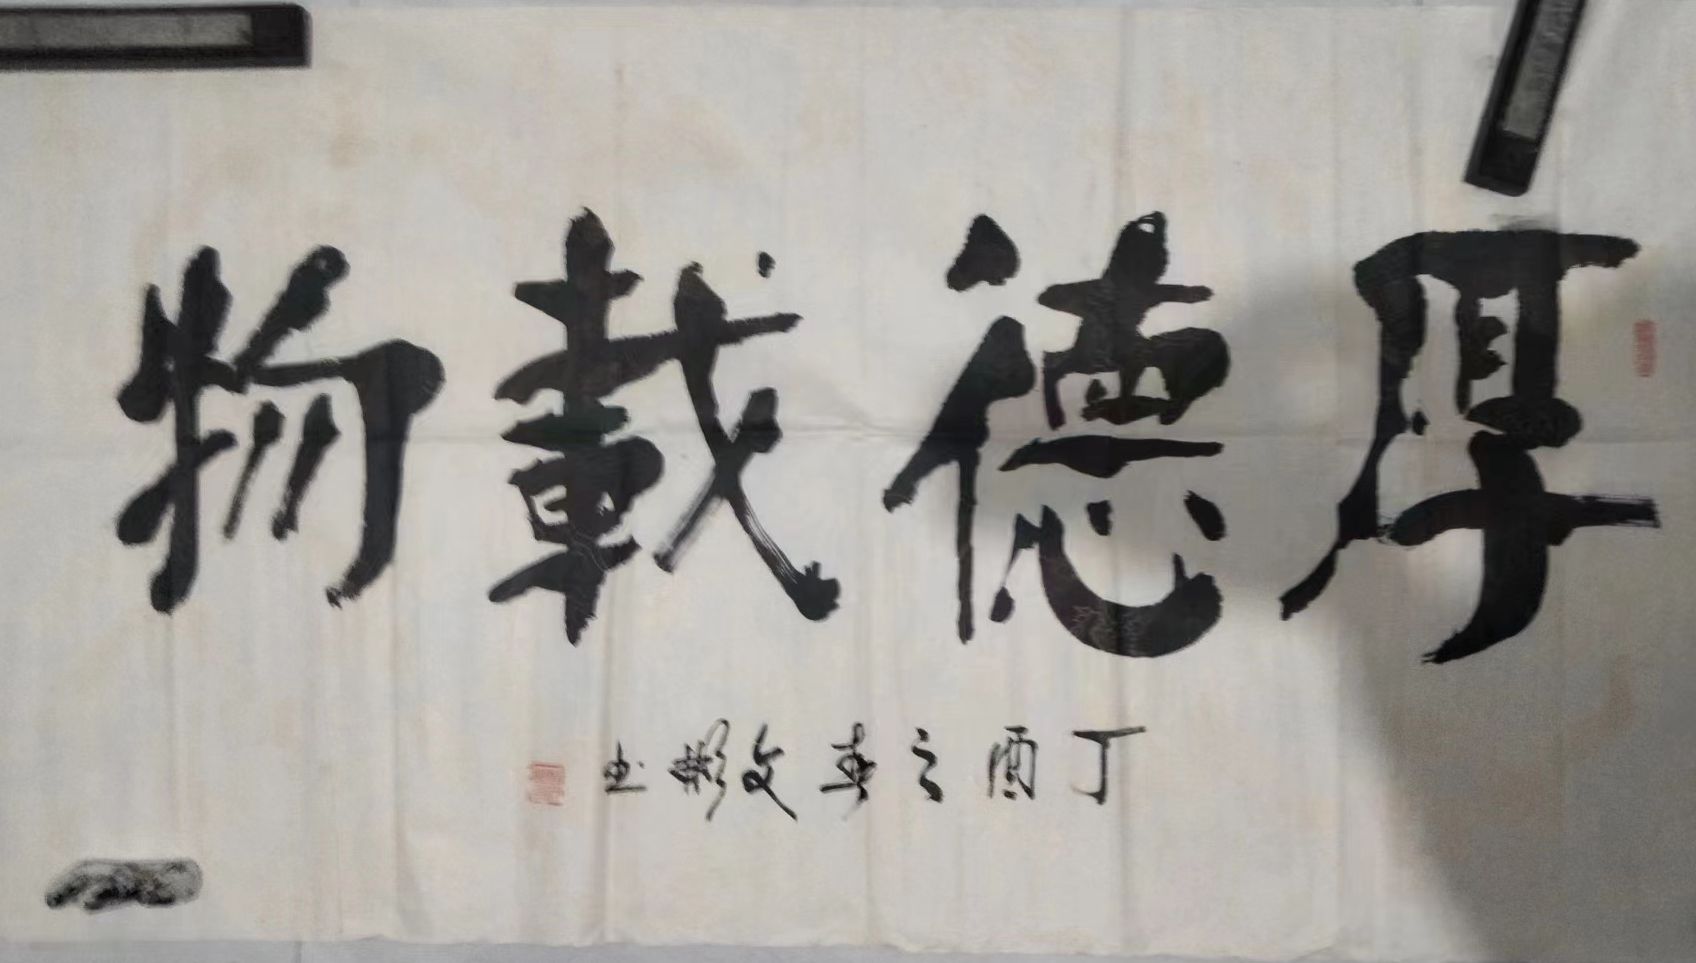 厚德載物
丁酉之春文彬书